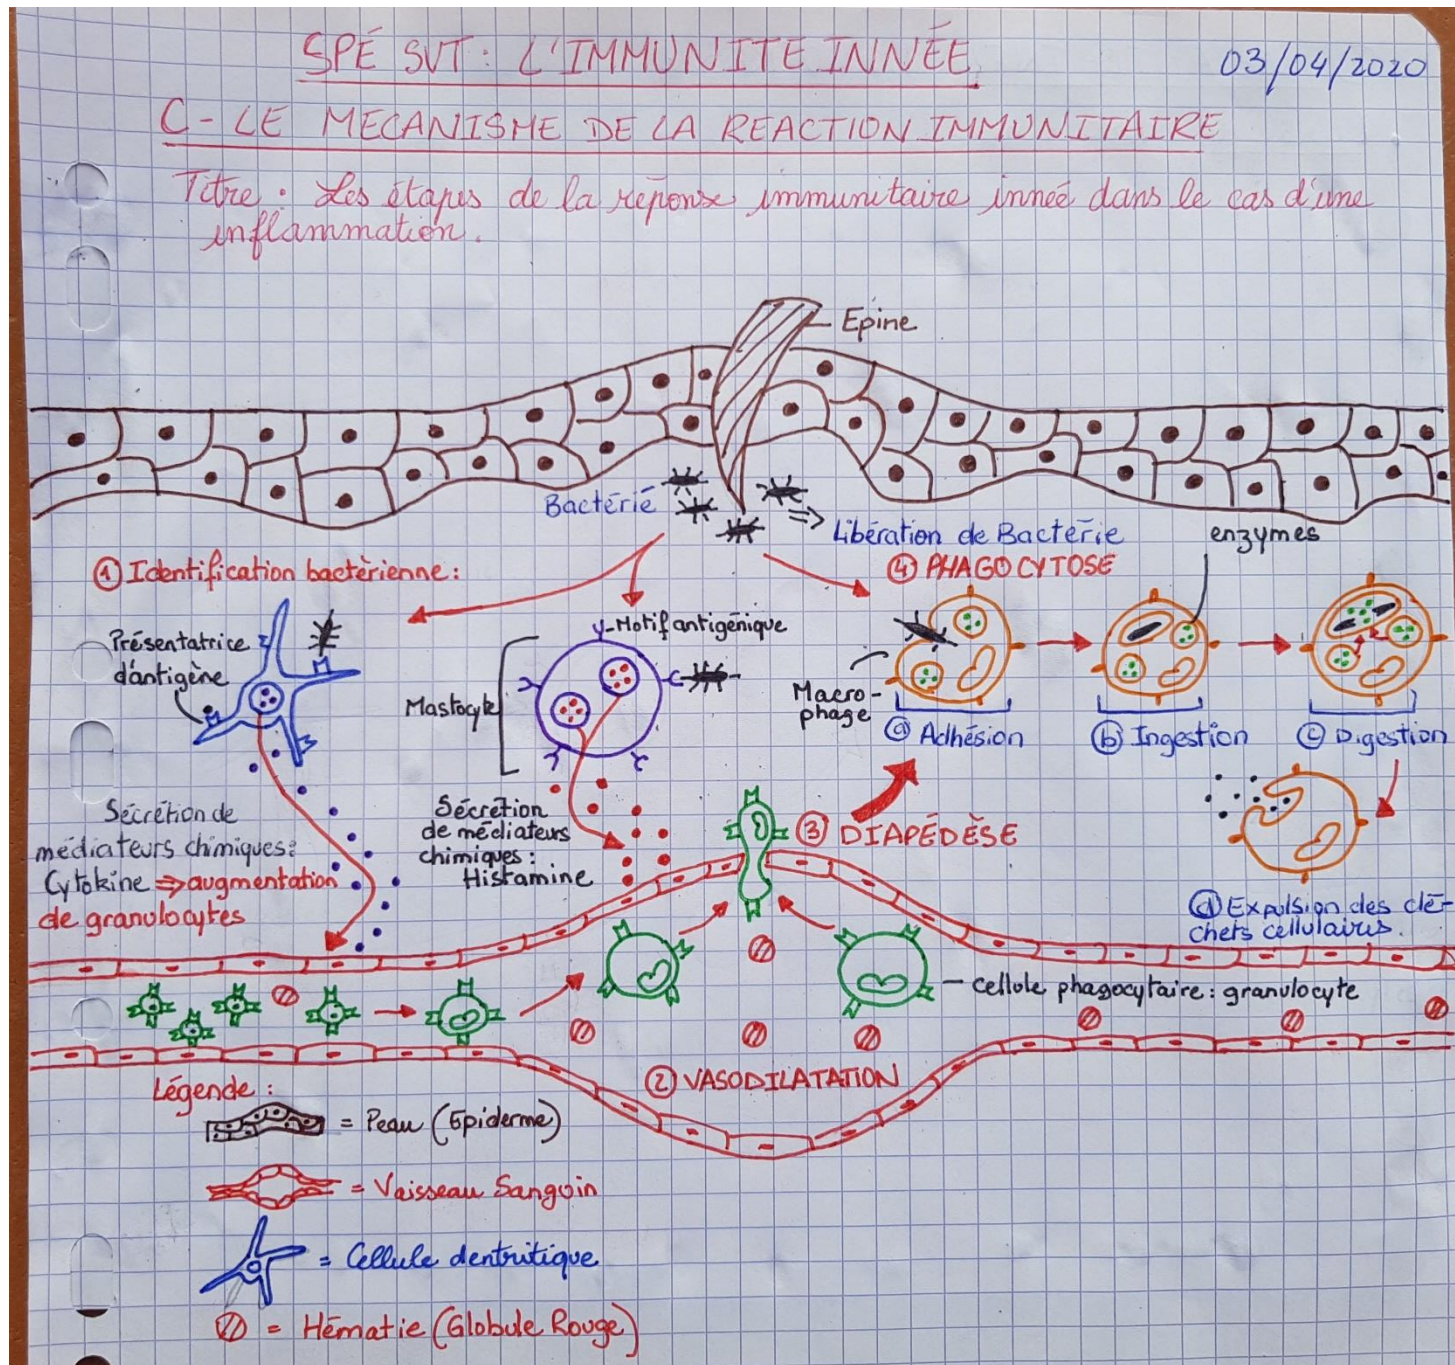 SPÉ SVT : L'IMMUNITE INNÉE
03/04/2020
C- LE MECANISME DE LA REACTION IMMUNITAIRE
Titre : Les étapes de la réponse immunitaire innée dans le cas d'une
inflammation.
Epine
Bactérie
⇒ Libération de Bactérie
enzymes
① Identification bactérienne :
④ PHAGOCYTOSE
Présentatrice
d'antigène
Motif antigénique
Mastocyte
Macro-
phage
ⓐ Adhésion
ⓑ Ingestion
ⓒ Digestion
Sécrétion de
médiateurs chimiques :
Cytokine ⇒ augmentation
de granulocytes
Sécrétion
de médiateurs
chimiques :
Histamine
③ DIAPÉDÈSE
ⓓ Expulsion des dé-
chets cellulaires.
cellule phagocytaire : granulocyte
② VASODILATATION
Légende :
= Peau (Epiderme)
= Vaisseau Sanguin
= Cellule dentritique
= Hématie (Globule Rouge)